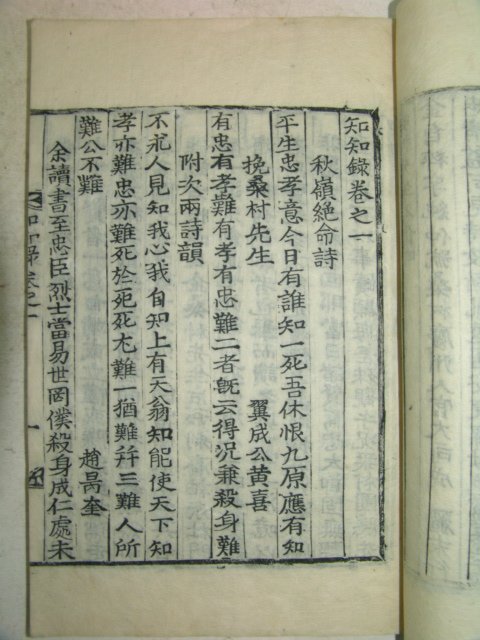 知知錄卷之一
秋嶺絶命詩
平生忠孝意今日有誰知一死吾休恨九原應有知
挽桑村先生 翼成公黃喜
有忠有孝難有孝有忠難二者旣云得況兼殺身難
附次兩詩韻
不求人見知我心我自知上有天翁知能使天下知
孝亦難忠亦難死於死死尤難一猶難幷三難人所
難公不難 趙昺奎
余讀書至忠臣烈士當易世罔僕殺身成仁處未
知知錄卷之一 一